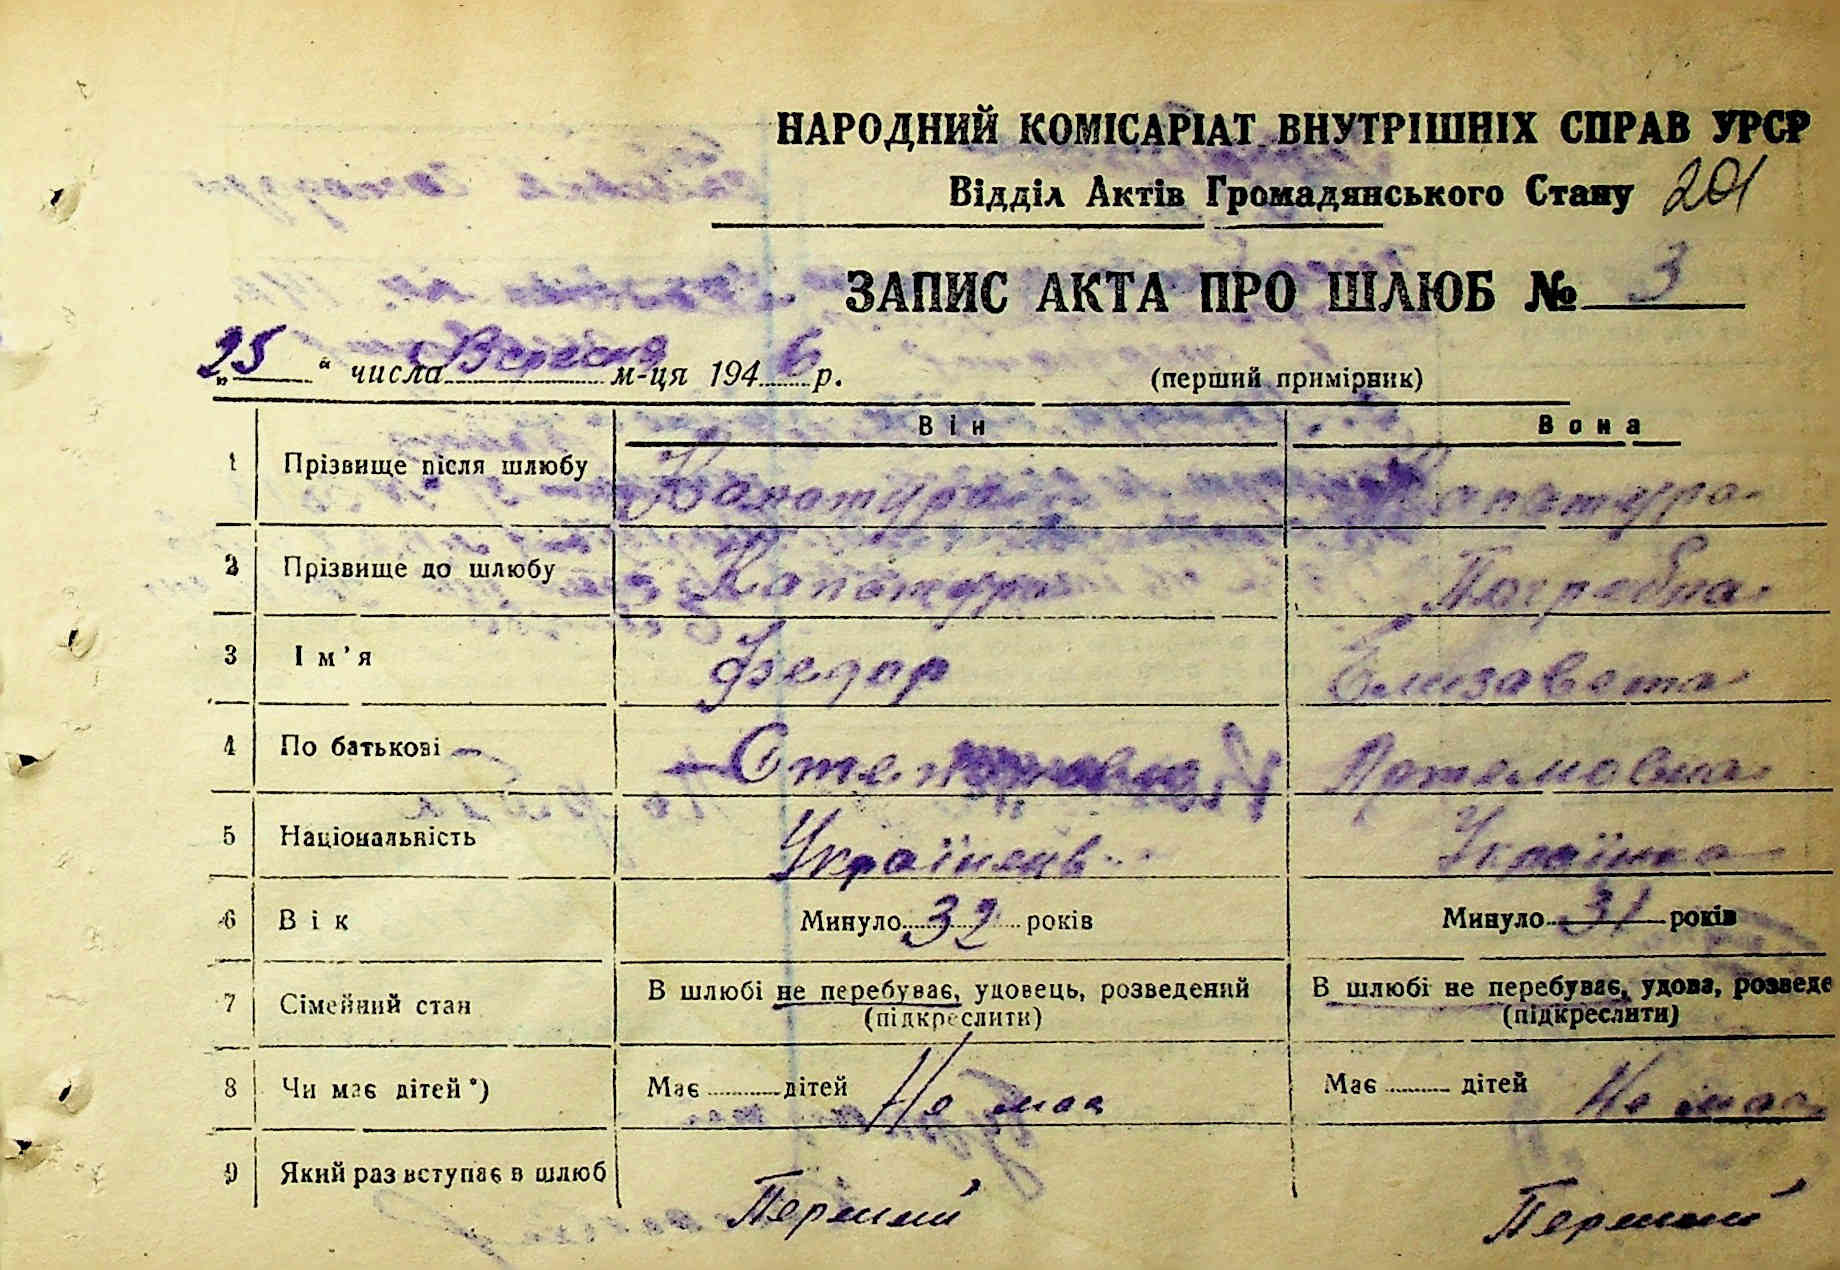 НАРОДНИЙ КОМІСАРІАТ ВНУТРІШНІХ СПРАВ УРСР
Відділ Актів Громадянського Стану 201
ЗАПИС АКТА ПРО ШЛЮБ № 3
„25“ числа м-ця 1946 р. (перший примірник)
Він Вона
1 Прізвище після шлюбу Капотура Капотура
2 Прізвище до шлюбу Капотура Погребна
3 Ім'я Федор Елизавета
4 По батькові Артемовна
5 Національність Українець Українка
6 Вік Минуло 32 років Минуло 31 років
7 Сімейний стан В шлюбі не перебуває, удовець, розведений В шлюбі не перебуває, удова, розведе
(підкреслити) (підкреслити)
8 Чи має дітей*) Має дітей Не має Має дітей Не має
9 Який раз вступає в шлюб Перший Перший